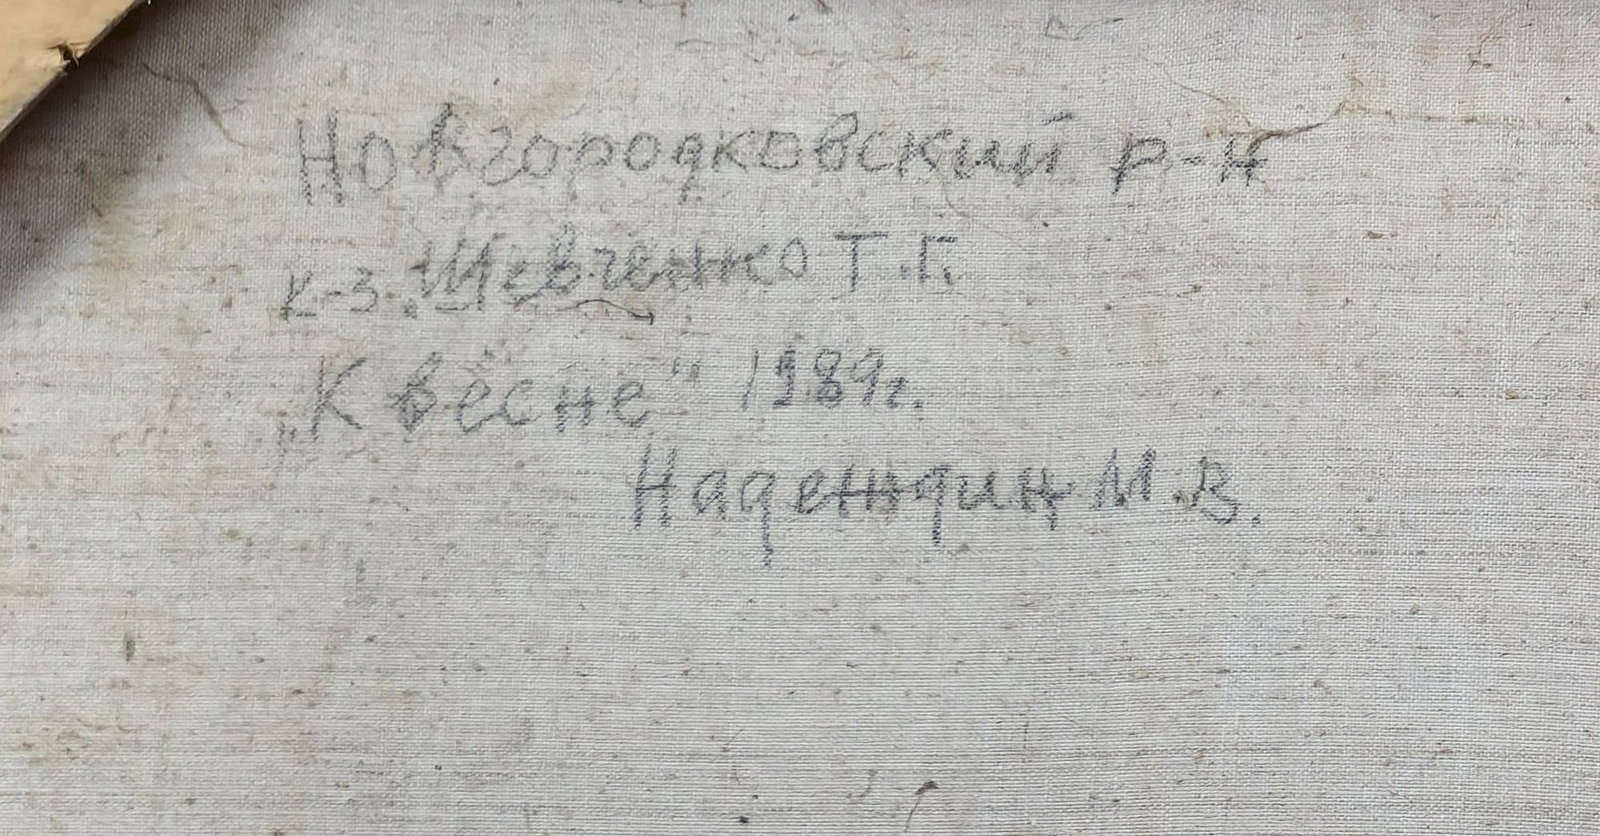 Новгородковский р-н
к-з. Шевченко Т.Г.
„К весне" 1989г.
Надеждин М.В.